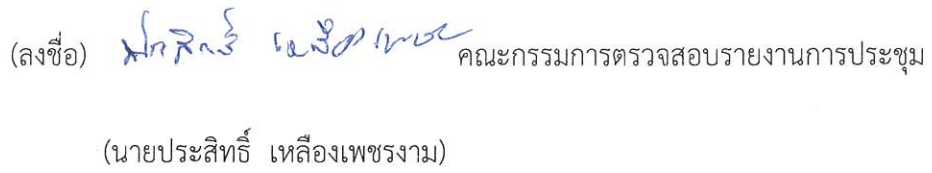 (ลงชื่อ) ประสิทธิ์ เหลืองเพชร คณะกรรมการตรวจสอบรายงานการประชุม
(นายประสิทธิ์ เหลืองเพชรงาม)